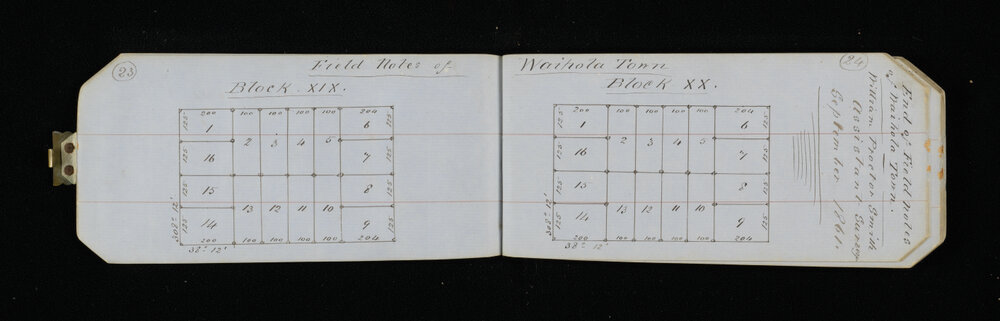 23
Field Notes of
Block XIX.
200 100 100 100 204
125 1 6 125
2 3 4 5
125 16 7 125
125 15 8 125
13 12 11 10
125 14 9 125
308° 12'
200 100 100 100 204
38° 12'
24
Waihola Town
Block XX.
200 100 100 100 204
125 1 6 125
2 3 4 5
125 16 7 125
125 15 8 125
13 12 11 10
125 14 9 125
308° 12'
200 100 100 100 204
38° 12'
End of Field Notes
of Waihola Town.
William Proctor Smith
Assistant Survey
September 1861